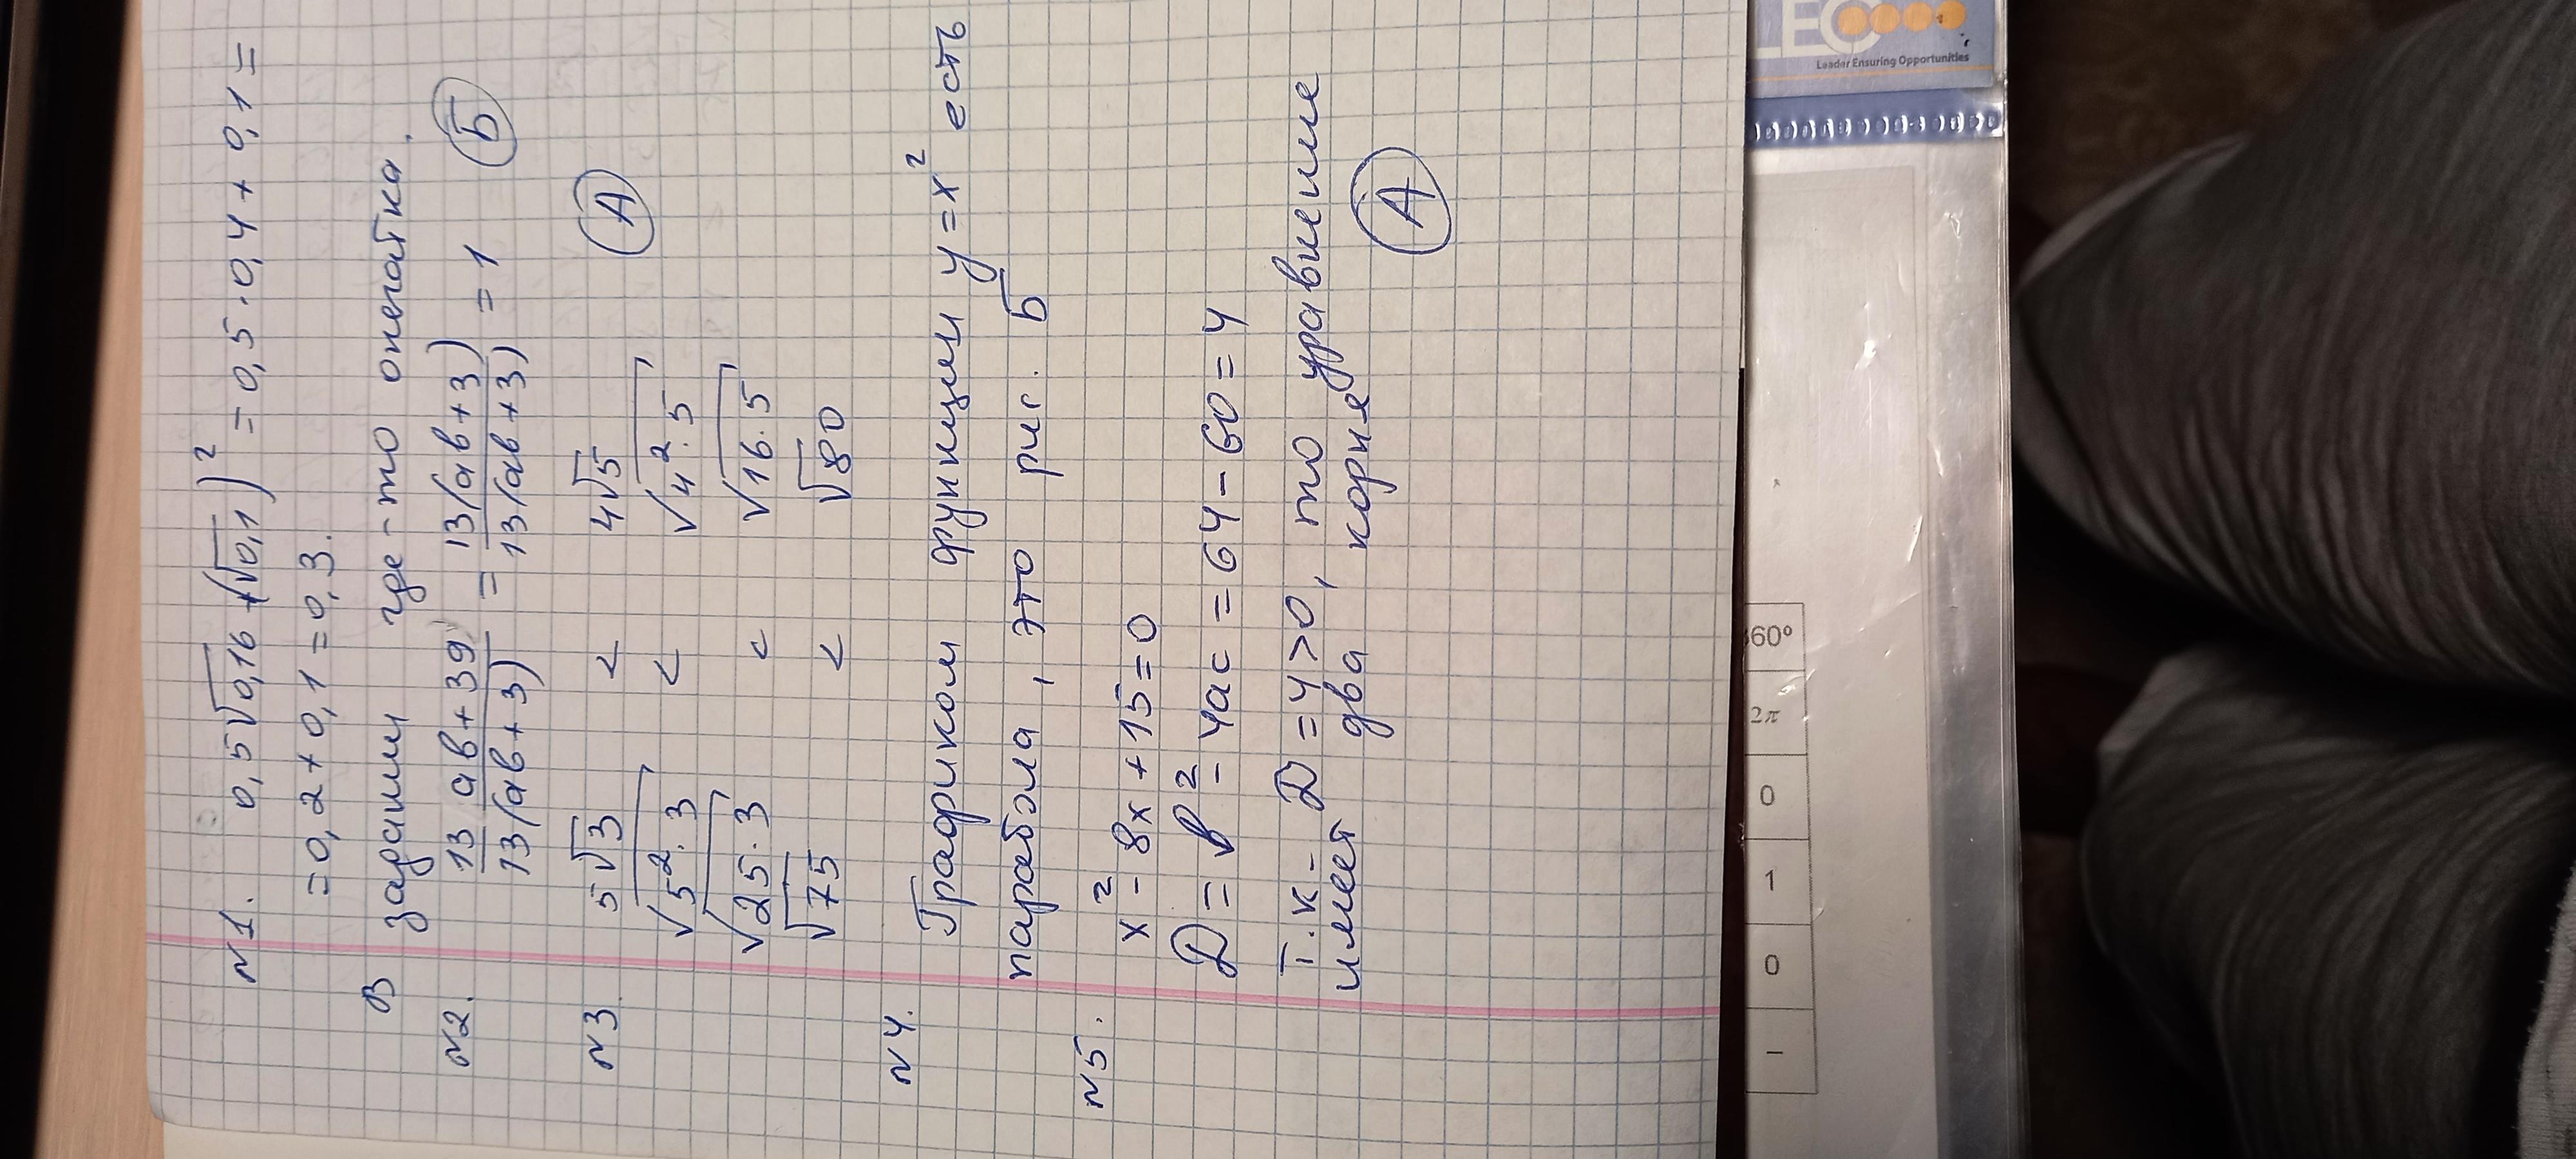 N1. 0,5√0,16 + (√0,1)² = 0,5·0,4 + 0,1 =
= 0,2 + 0,1 = 0,3.
В задании где-то опечатка.
N2. (13 ав + 39)/(13(ав + 3)) = (13(ав + 3))/(13(ав + 3)) = 1 Б
N3. 5√3 < 4√5 А
√5²·3 < √4²·5
√25·3 < √16·5
√75 < √80
N4. Графиком функции y = x² есть
парабола, это рис. Б
N5. x² - 8x + 15 = 0
D = в² - 4ac = 64 - 60 = 4
Т.к. D = 4 > 0, то уравнение
имеет два корня А
LEO
Leader Ensuring Opportunities
360°
2π
0
1
0
−